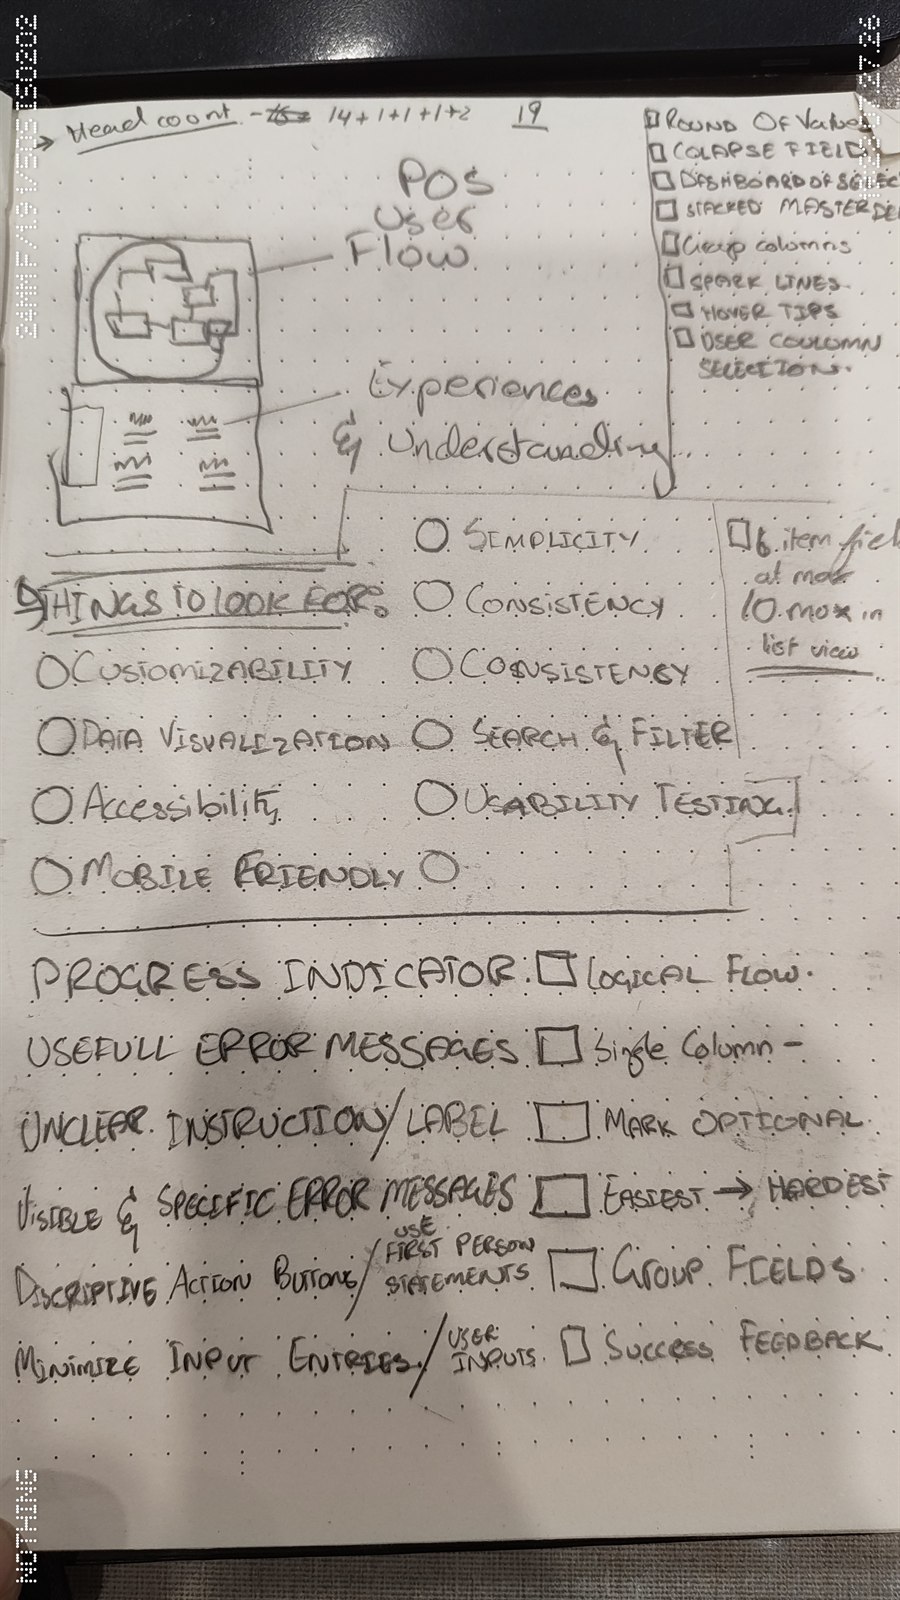 → Head count - 14+1+1+1+2 19
POS
User
Flow
Experiences
& Understanding
ROUND OF Values
COLAPSE FIELD
DASHBOARD OF SELEC
STACKED MASTER DE
Group columns
SPARK LINES
HOVER TIPS
USER COULUMN
SELECTION.
THINGS TO LOOK FOR:
CUSTOMIZABILITY
DATA VISUALIZATION
Accessibility
MOBILE FRIENDLY
SIMPLICITY
CONSISTENCY
CONSISTENCY
SEARCH & FILTER
USABILITY TESTING.
6 item fiel
at max
10 max in
list view
PROGRESS INDICATOR. LOGICAL FLOW.
USEFULL ERROR MESSAGES Single Column -
UNCLEAR INSTRUCTION/LABEL MARK OPTIONAL.
VISIBLE & SPECIFIC ERROR MESSAGES EASIEST → HARDEST
DISCRIPTIVE ACTION BUTTONS/ USE FIRST PERSON STATEMENTS GROUP FIELDS
MINIMIZE INPUT ENTRIES./ USER INPUTS. SUCCESS FEEDBACK
NOTHING
24MM F/1.9 1/50S ISO202